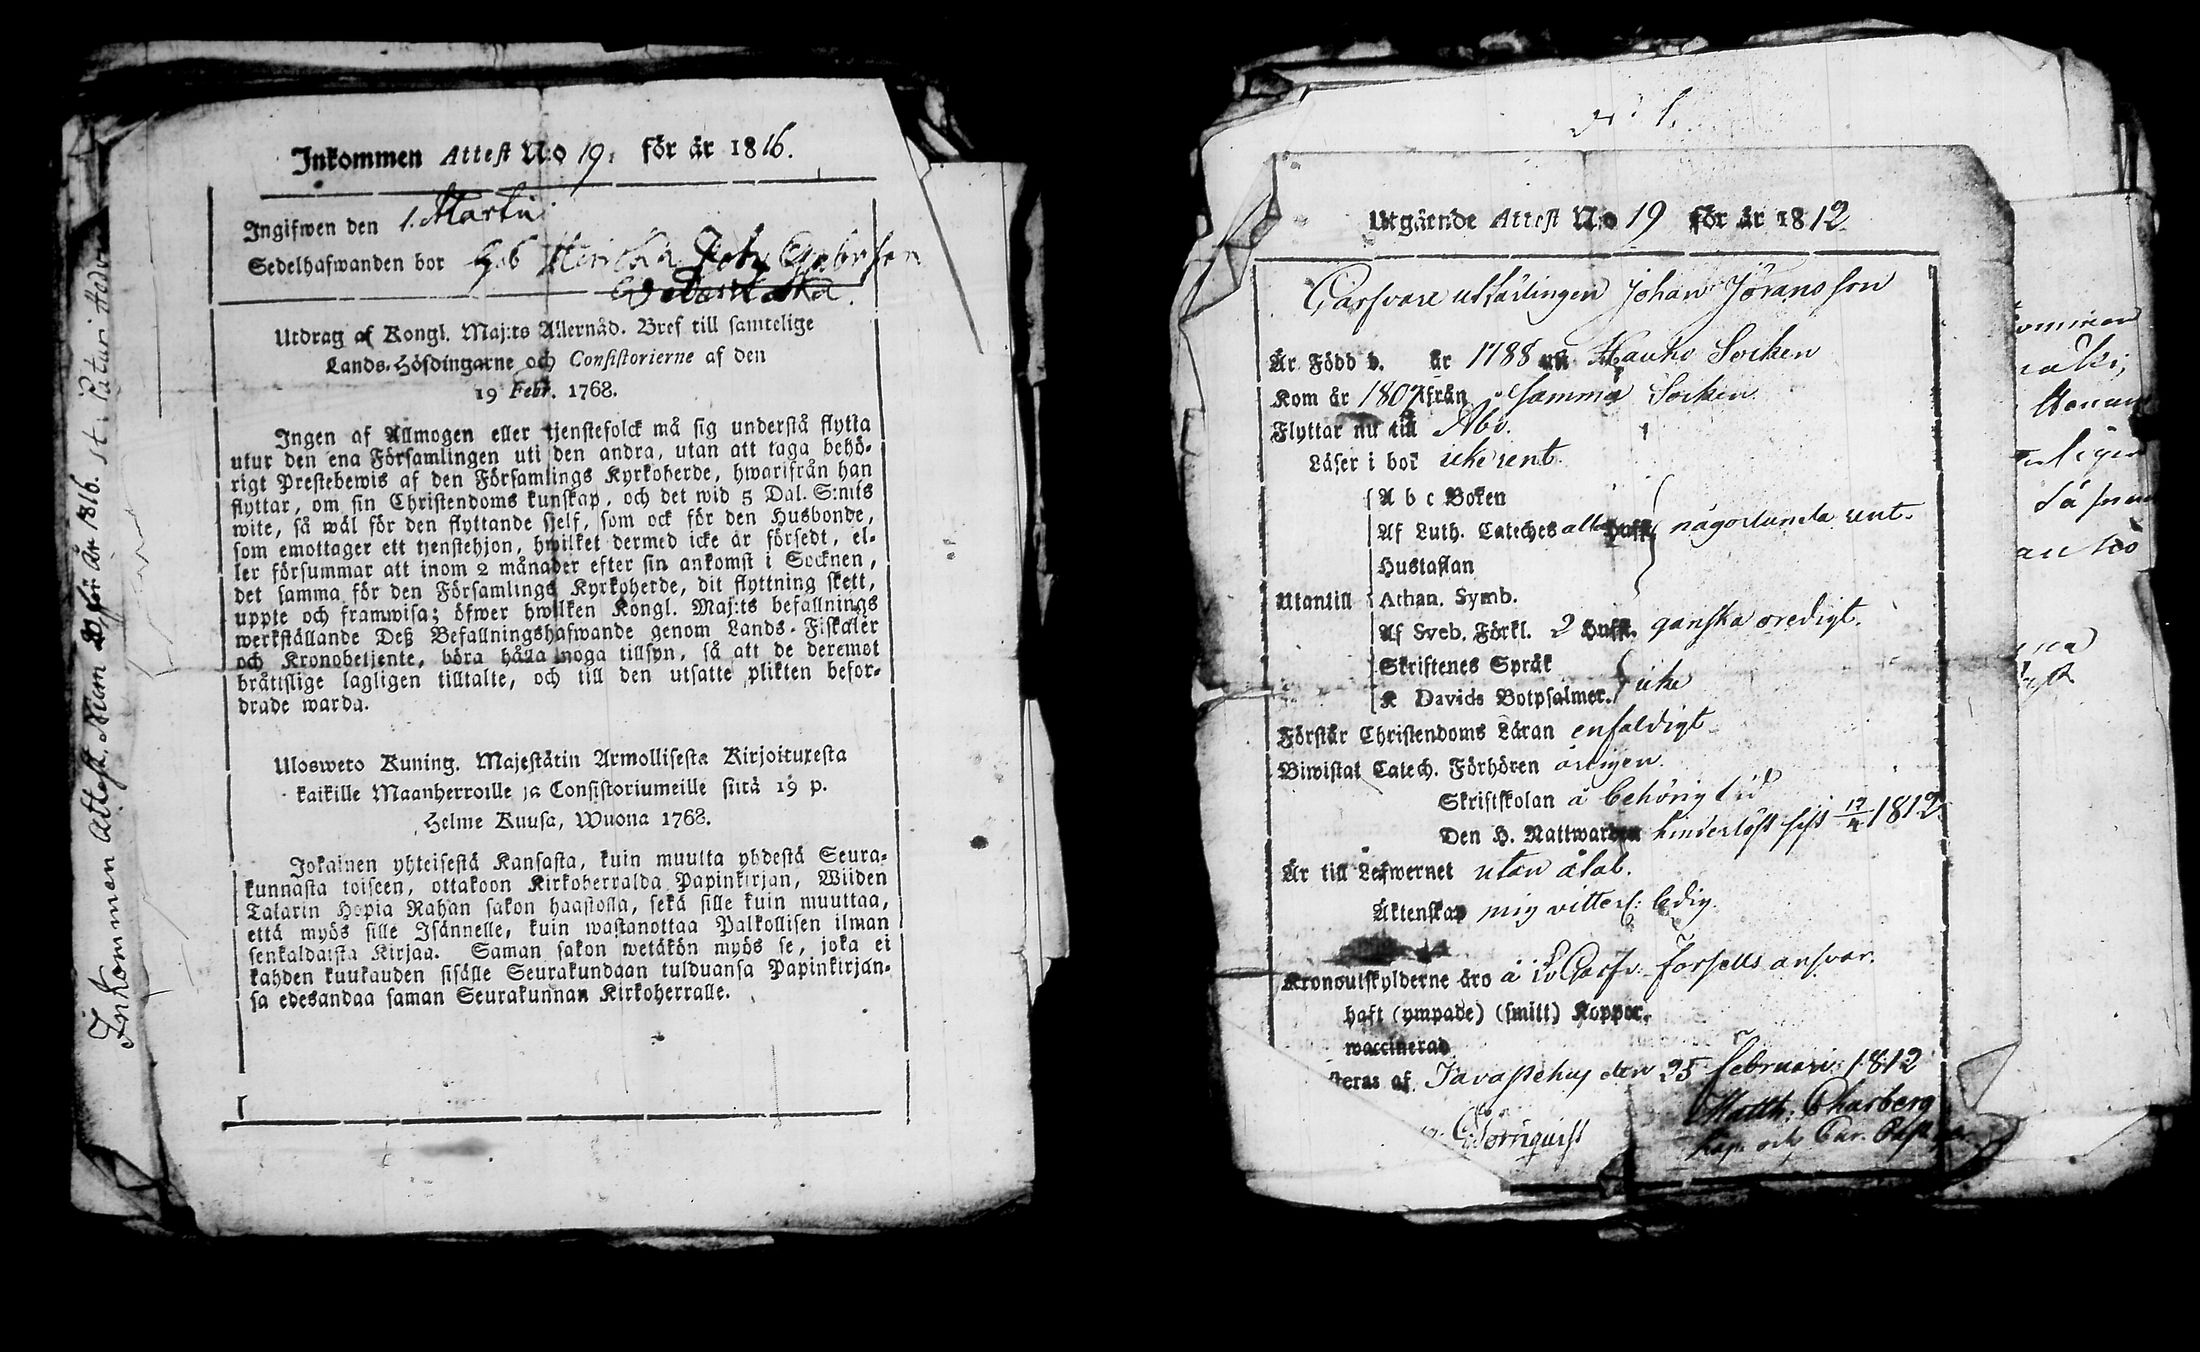 Inkommen Attest N:o 19. för år 1816.
Ingifwen den 1. Martii
Sedelhafwanden bor hos
Utdrag af Kongl. Maj:ts Allernåd. Bref till samtelige
Lands-Höfdingarne och Consistorierne af den
19 Febr. 1768.
Ingen af Allmogen eller tjenstefolck må sig understå flytta
utur den ena Församlingen uti den andra, utan att taga behö-
rigt Prestebewis af den Församlings Kyrkoherde, hwarifrån han
flyttar, om sin Christendoms kunskap, och det wid 5 Dal. S:mts
wite, så wäl för den flyttande sjelf, som ock för den Husbonde,
som emottager ett tjenstehjon, hwilket dermed icke är försedt, el-
ler försummar att inom 2 månader efter sin ankomst i Socknen,
det samma för den Församlings Kyrkoherde, dit flyttning skett,
uppte och framwisa; öfwer hwilken Kongl. Maj:ts befallnings
werkställande Deß Befallningshafwande genom Lands-Fiskaler
och Kronobetjente, böra hålla noga tillsyn, så att de deremot
bråttslige lagligen tilltalte, och till den utsatte plikten befor-
drade warda.
Ulosweto Kuning. Majestätin Armollisesta Kirjoituxesta
kaikille Maanherroille ja Consistoriumeille siitä 19 p.
Helme Kuusa, Wuona 1768.
Jokainen yhteisestä Kansasta, kuin muutta yhdestä Seura-
kunnasta toiseen, ottakoon Kirkoherralda Papinkirjan, Wiiden
Talarin Hopia Rahan sakon haastolla, sekä sille kuin muuttaa,
että myös sille Isännelle, kuin wastanottaa Palkollisen ilman
senkaldaista Kirjaa. Saman sakon wetäkön myös se, joka ei
kahden kuukauden sisälle Seurakundaan tulduansa Papinkirjan-
sa edesandaa saman Seurakunnan Kirkoherralle.
Inkommen Attest. Num 20 för År 1816.
N:o 1.
Utgående Attest N:o 19 för år 1812.
Garfvare utlärlingen Johan Jöransson
Är Född d. år 1788 uti Hauho Socken
Kom år 1807 ifrån samma Socken
Flyttar nu till Åbo.
Läser i bok icke rent
A b c Boken
Af Luth. Cateches alla Huffst. någorlunda rent.
Hustaflan
Utantill Athan. Symb.
Af Sveb. Förkl. 2 Huffst. ganska oredigt.
Skriftenes Språk
K Davids Botpsalmer. icke
Förstår Christendoms Läran enfaldigt
Biwistat Catech. Förhören årligen.
Skriftskolan å behörig tid
Den H. Nattwarden hinderlöst sist 12/4 1812.
Är till Lefwernet utan åtal.
Äktenskap mig vitterl: ledig.
Kronoutskylderne äro å Garfv. Forsells ansvar.
haft (ympade) (smitt) Koppor.
waccinerad
steras af Tavastehus den 25 Februari 1812
Matth.